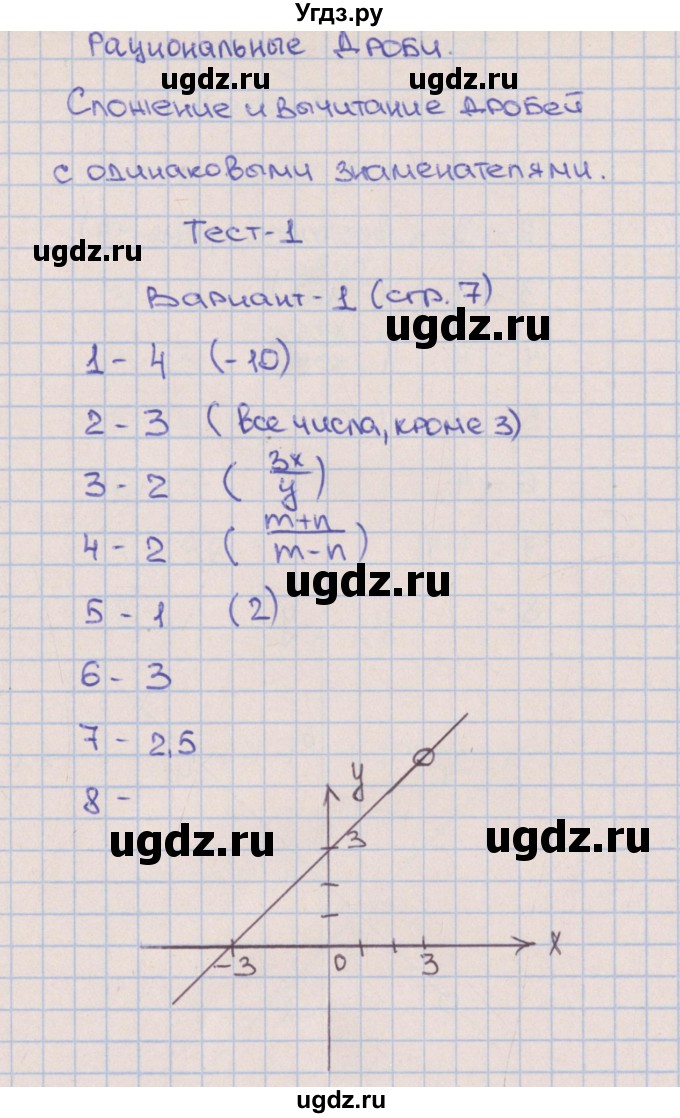 Угдз.ру
Рациональные дроби.
ugdz.ru ugdz.ru
Сложение и вычитание дробей
с одинаковыми знаменателями.
Тест-1
ugdz.ru
Вариант-1 (стр. 7)
ugdz.ru
1 - 4 (-10)
2 - 3 (все числа, кроме 3)
3 - 2 (3x/y)
4 - 2 (m+n/m-n)
ugdz.ru
5 - 1 (2)
6 - 3
7 - 2,5
8 -
y
3
ugdz.ru ugdz.ru
x
-3 0 3
Угдз.ру